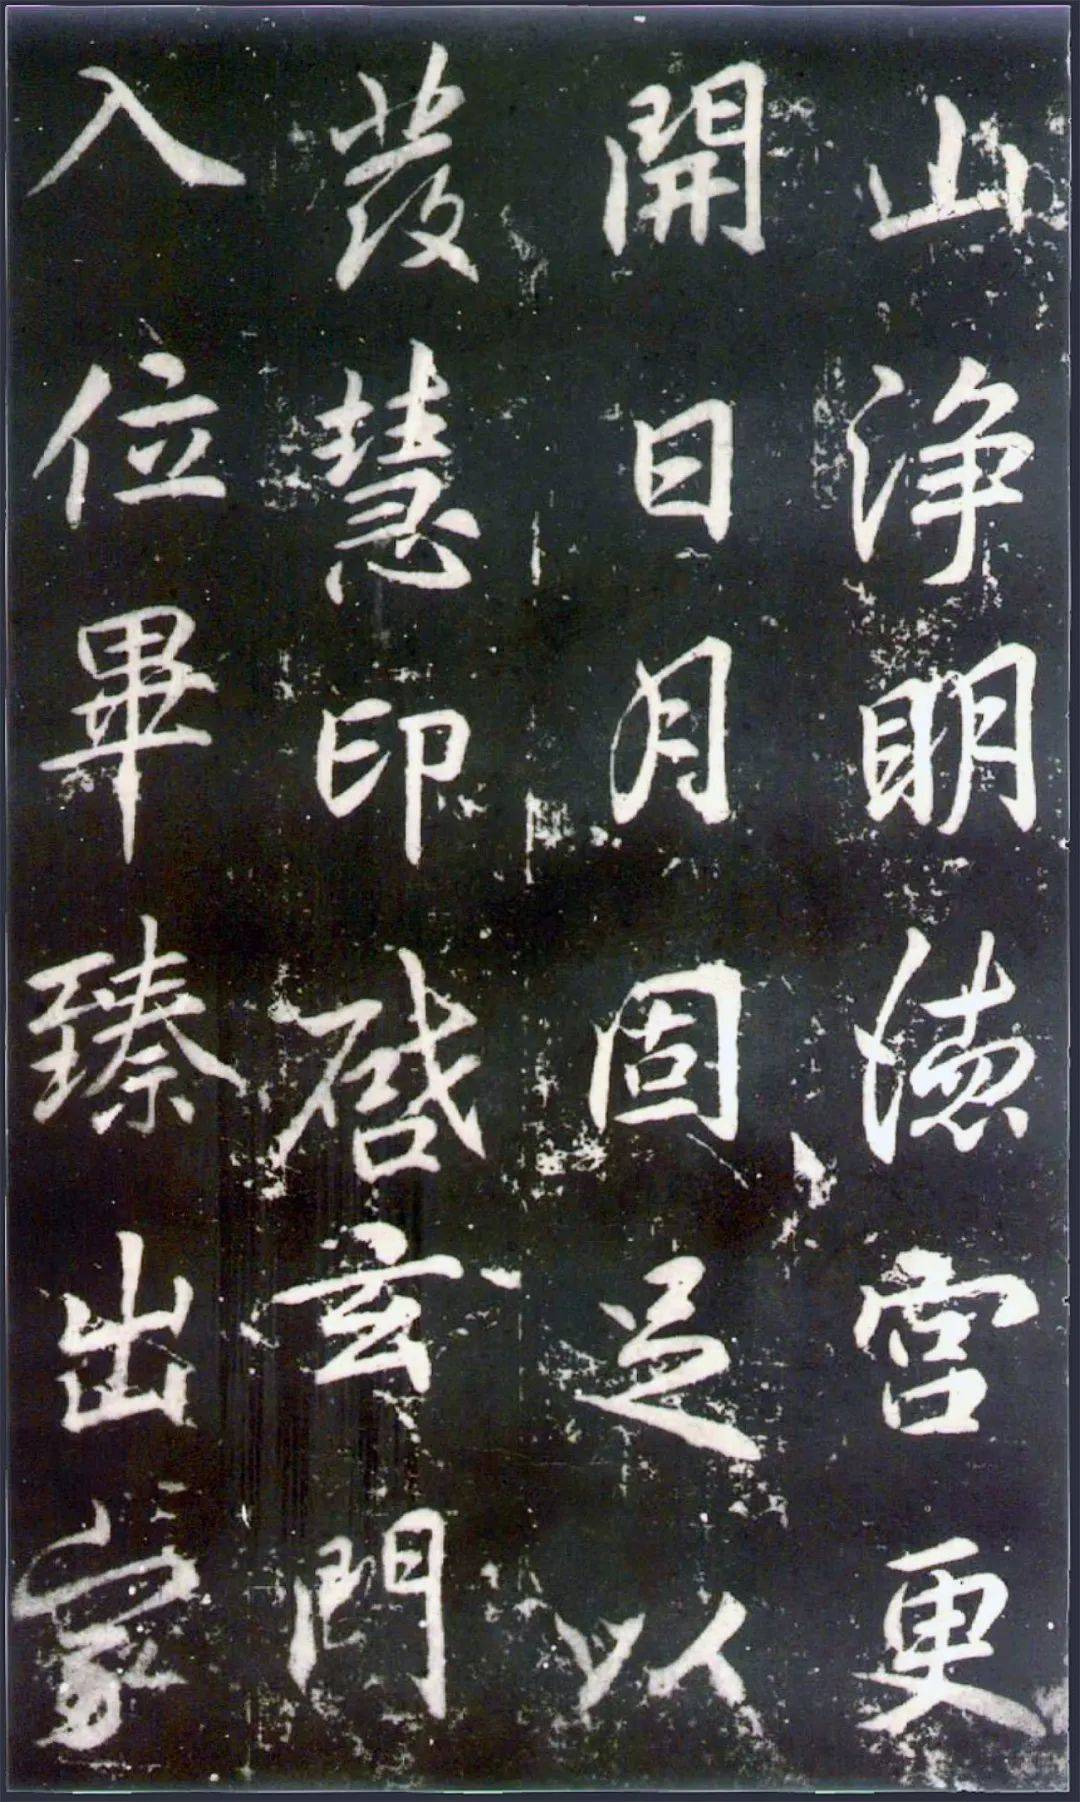 山淨明德宮更
開日月固足以
發慧印啓玄門
入位畢臻出家